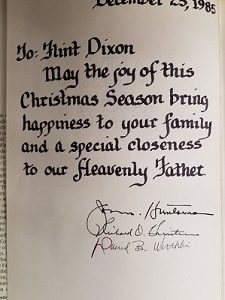 December 25, 1985
To: Flint Dixon
May the joy of this
Christmas Season bring
happiness to your family
and a special closeness
to our Heavenly Father.
Huntsman
Richard D.
David B.